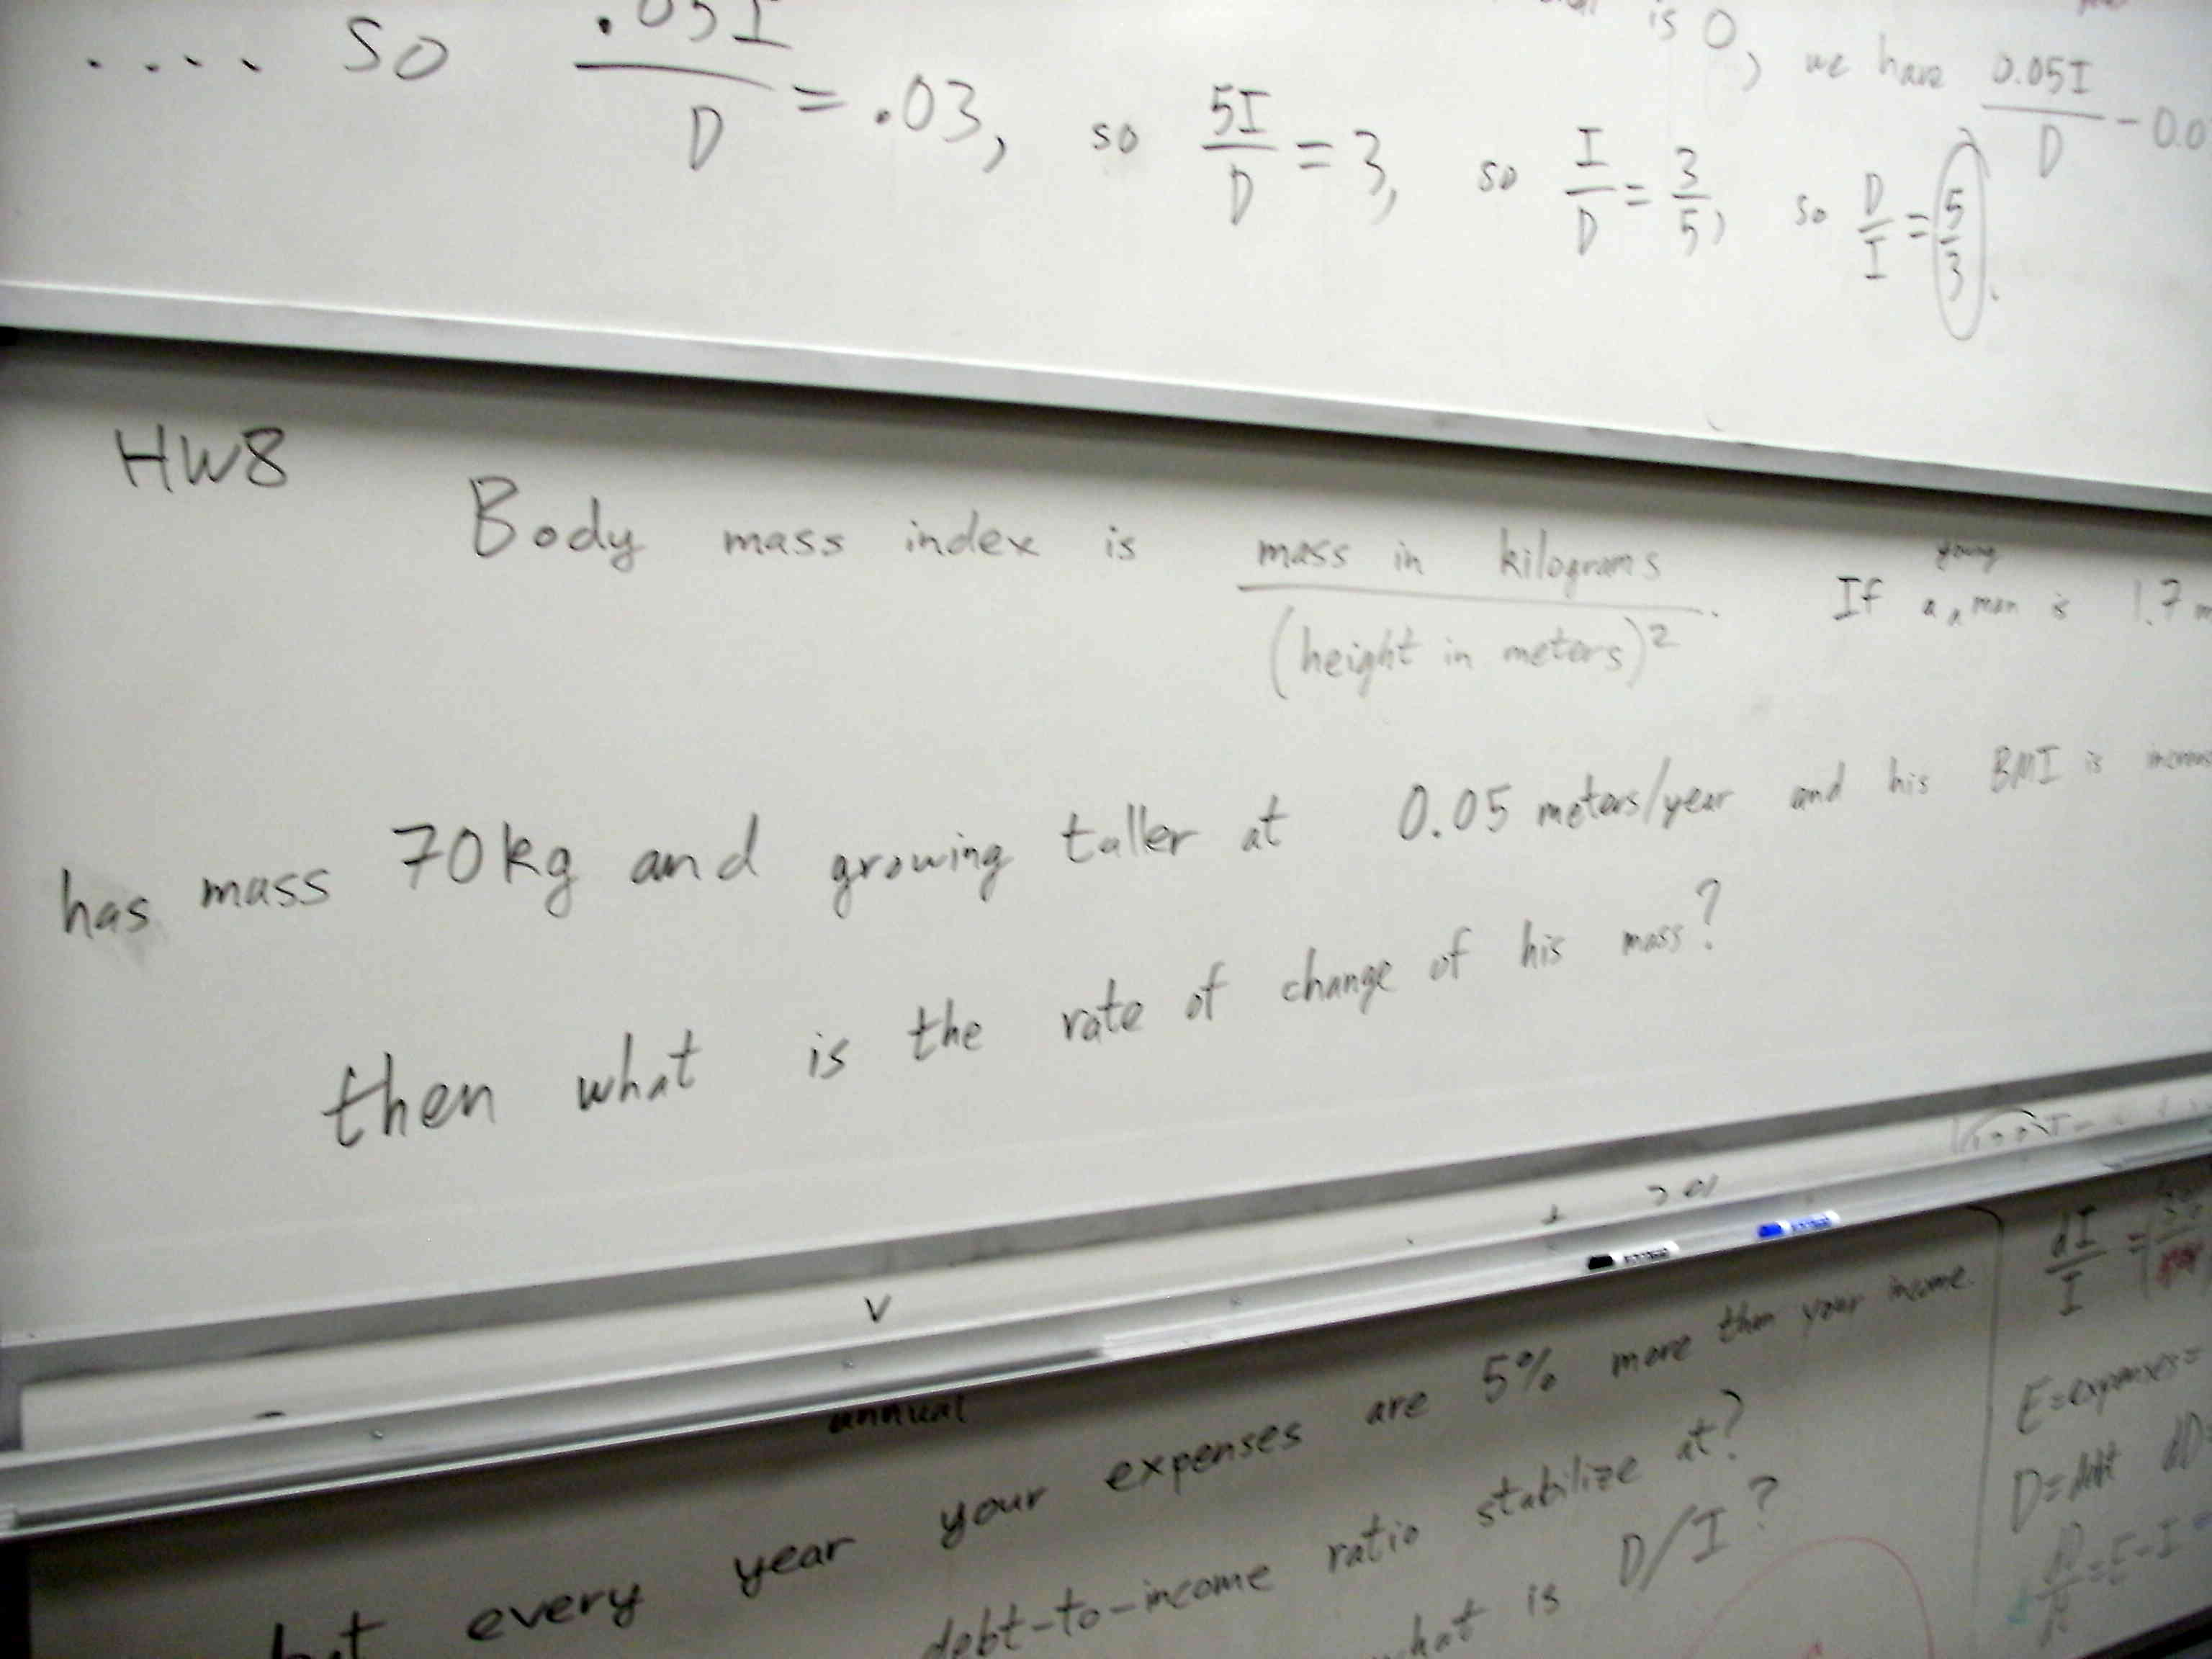 .... so .05I/D = .03, so 5I/D = 3, so I/D = 3/5, so D/I = 5/3.
is 0, we have 0.05I/D - 0.0
HW8
Body mass index is mass in kilograms/(height in meters)². If a young man is 1.7 m
has mass 70kg and growing taller at 0.05 meters/year and his BMI is
then what is the rate of change of his mass?
annual
but every year your expenses are 5% more than your income.
debt-to-income ratio stabilize at?
what is D/I?
dI/I =
E=expenses=
D=debt dD
dD/dt=E-I=